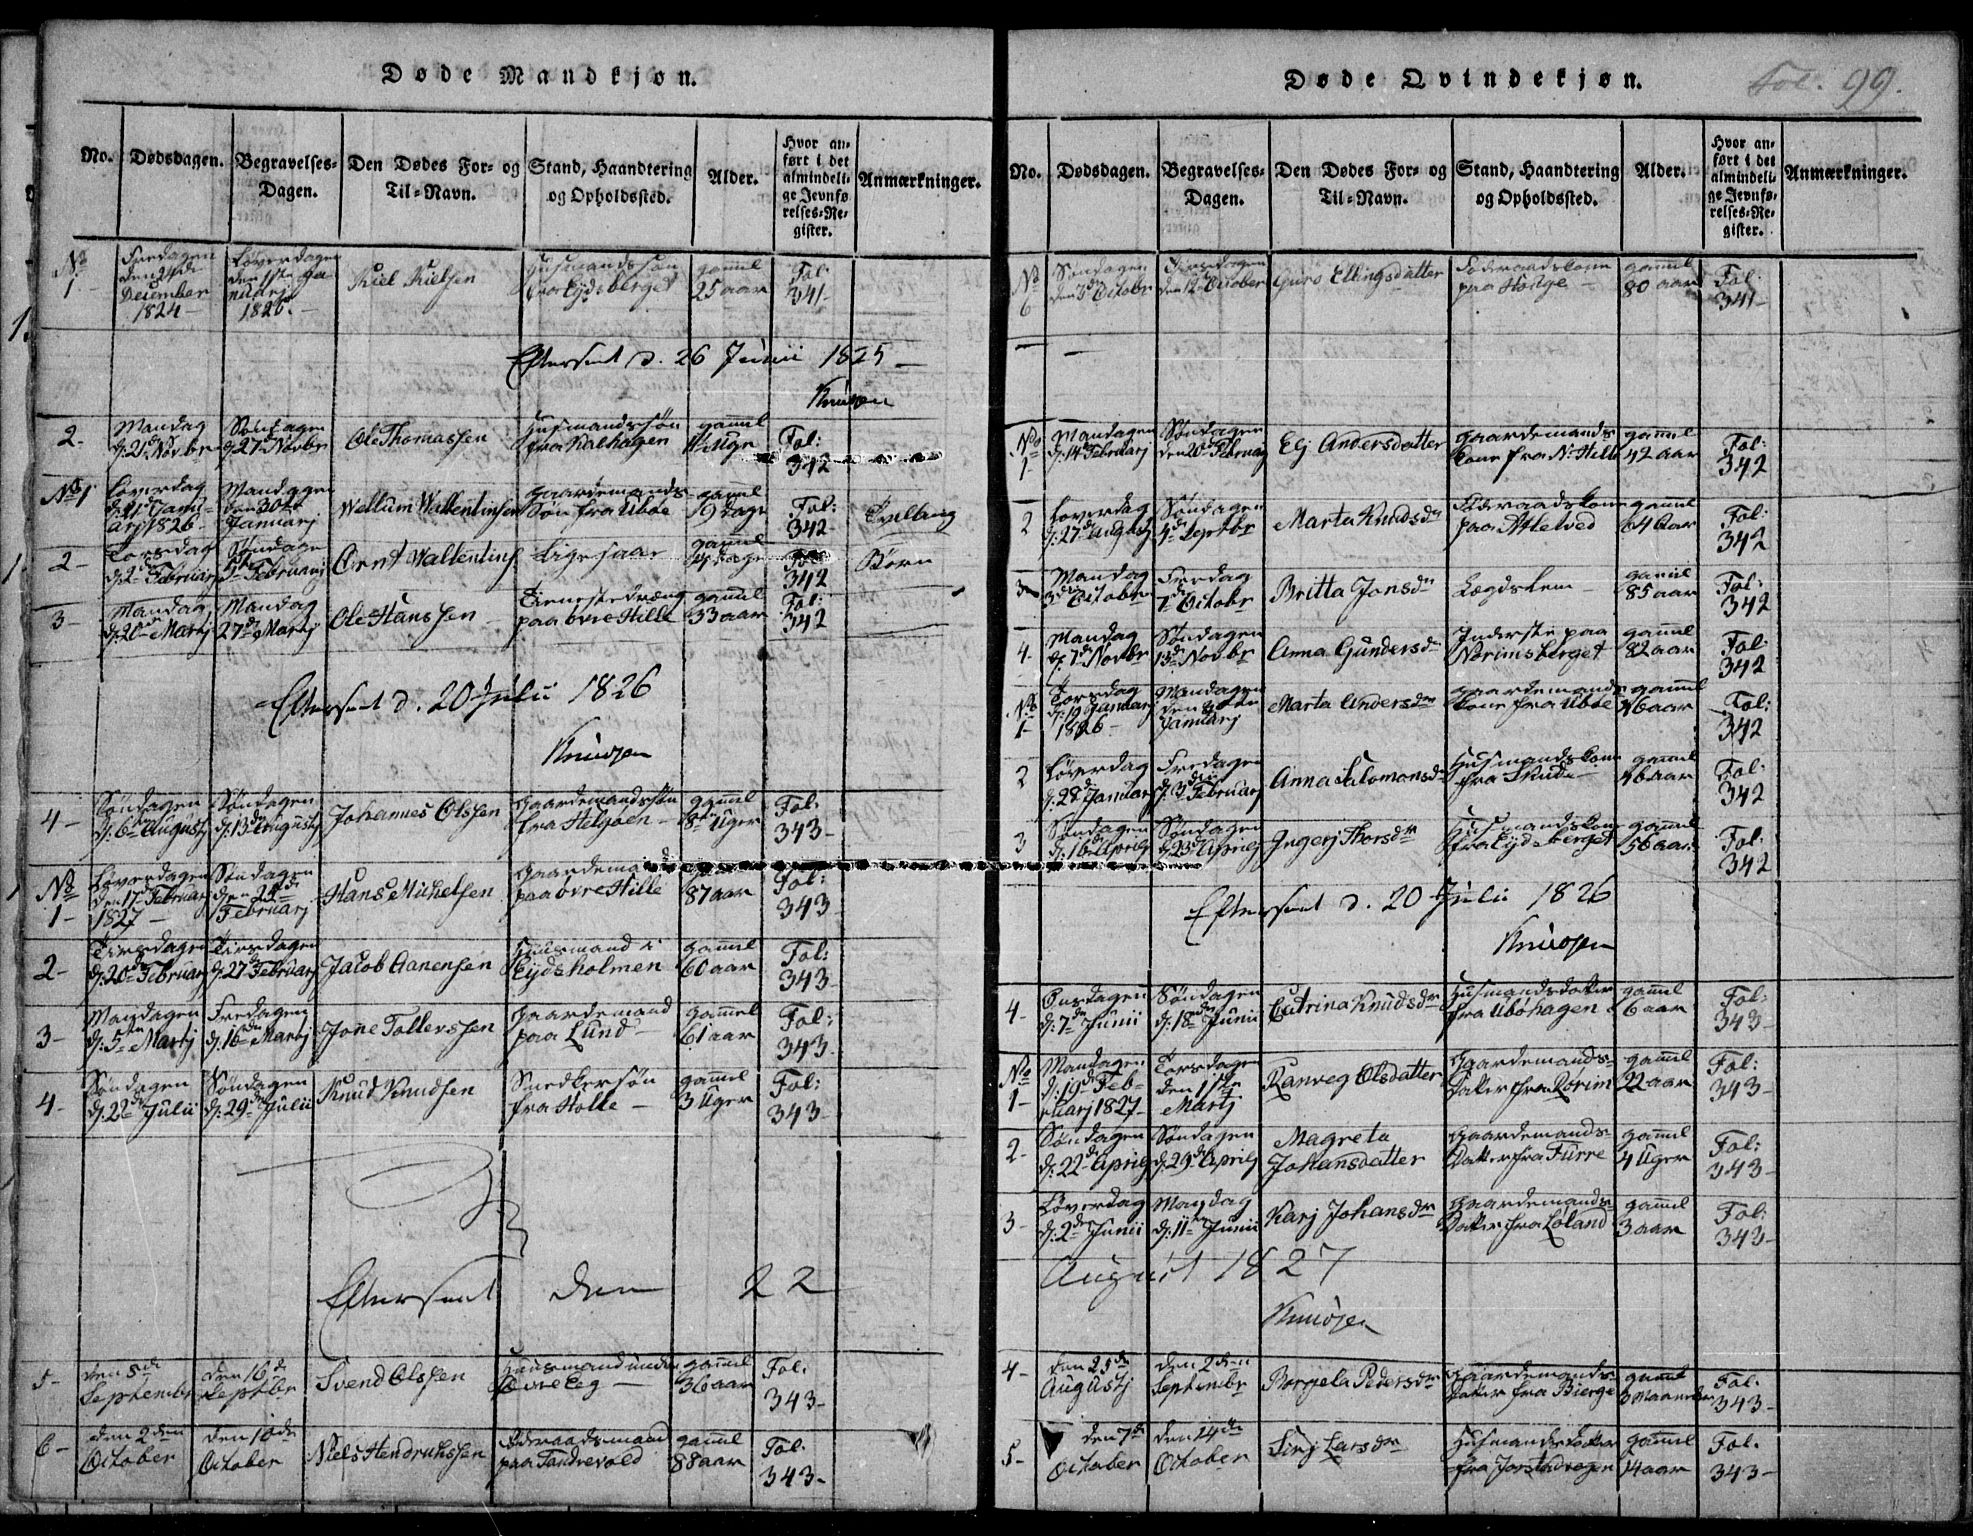 Døde Mandkjøn.
No. Dødsdagen. Begravelses-Dagen. Den Dødes For- og Til-Navn. Stand, Haandtering og Opholdssted. Alder. Hvor anført i det almindelige Jevnførelses-Register. Anmærkninger.
No 1 Fredagen den 24de December 1824 Løverdagen den 1ste Januarj 1825 Kiel Kielsen Husmandssøn fra Eydsberget gammel 25 aar Fol: 341
Eftersent d. 26 Junii 1825
Knudsen
2 Mandag d: 21de Novbr Søndagen d 27de Novbr Ole Thomassen Husmandssøn fra Kalhagen gammel Uge Fol: 342
No 1 Løverdag d 21de Januarj 1826 Mandagen den 30te Januarj Wellum Wallentinsen Gaardemands Søn fra Ubøe gammel 9 dage Fol: 342 Tvelling
2 Torsdag d: 2de Februarj Søndagen 5te Februarj Arent Wallentins Ligesaa gammel dage Fol: 342 Børn
3 Mandag d: 20de Martj Mandag 27de Martj Ole Hanssen Tienestedræng paa øvre Hille gammel 33 aar Fol: 342
Eftersent d. 20 Julii 1826
Knudsen
4 Søndagen d: 6te Augustj Søndagen d: 13de Augustj Johannes Olssen Gaardemandssøn fra Helgøen gammel 8te Uger Fol. 343
No 1 Løverdagen den 17de Februarj 1827 Søndagen den 25de Februarj Hans Michelsen Gaardemand paa øvre Hille 87 aar Fol: 343
2 Tirsdagen d: 20de Februarj Tirsdagen d: 27de Februarj Jacob Aanensen Huusmand i Eydsholmen gammel 60 aar Fol: 343
3 Mandagen d: 5te Martj Fredagen d: 16de Martj Jone Tollerssen Gaardemand paa Lund gammel 61 aar Fol: 343
4 Søndagen d: 22de Julii Søndagen d: 29de Julii Knud Knudsen Smedkersøn fra Holle gammel 3 Uger Fol: 343
Eftersent den 22
5 den 5te September den 16de Septbr Svend Olssen Huusmand under Øvre Eeg gammel 36 aar Fol. 343
6 den 2den October den 10de October Niels Hendrichssen Føderaadsmand paa Tandrevold gammel 88 aar Fol. 343
Døde Qvindekjøn.
Fol. 99.
No. Dødsdagen. Begravelses-Dagen. Den Dødes For- og Til-Navn. Stand, Haandtering og Opholdssted. Alder. Hvor anført i det almindelige Jevnførelses-Register. Anmærkninger.
No 6 Søndagen den 3de Octobr den 12te October Guro Ellingsdatter Føderaadskone paa Hødge gammel 80 aar Fol 341
No 1 Mandagen d: 14de Februarj Søndagen den 20de Februarj Elj Andersdatter Gaardemands kone fra N: Hille gammel 42 aar Fol: 342
2 Løverdag d: 27de Augustj Søndagen 4de Septbr Marta Knudsdr Føderaadskone paa Attelved gammel 64 aar Fol: 342
3 Mandag 3die Octobr Fredag 7de Octobr Britta Jonsdr Lægdslem gammel 85 aar Fol: 342
4 Mandag d: 7de Novbr Søndagen 13de Novbr Anna Gundersdr Inderste paa Norimsberget gammel 82 aar Fol 342
No 1 Torsdag d: 19 Januarj 1826 Mandagen den 30te Januarj Marta Andersdr Gaardemands kone fra Ubøe gammel 46 aar Fol: 342
2 Løverdag d: 28de Januarj Fredagen d: 3die Februarj Anna Salomonsdr Husmandskone fra Skude gammel 46 aar Fol: 342
3 Søndagen d: 16de Aprilj Søndagen d: 23de Aprilj Ingerj Thorsdr Husmandskone fra Eydsberget gammel 56 aar Fol: 342
Eftersent d. 20 Julii 1826
Knudsen
4 Onsdagen d: 7de Junii Søndagen d: 18de Junii Catrina Knudsdr Husmandsdatter fra Ubøhagen gammel 6 aar Fol: 343
No 1 Mandagen d: 19de Februarj 1827 Torsdagen den 1ste Martj Ranveg Olsdatter Gaardemands Datter fra Rorim gammel 22 aar Fol: 343
2 Søndagen d: 22de Aprilj Søndagen d: 29de Aprilj Magreta Johansdatter Gaardemands Datter fra Furre gammel 4 Uger Fol: 343
3 Løverdag d: 2den Junii Mandag d: 11te Junii Karj Johansdr Gaardemands Datter fra Løland gammel 3 aar Fol: 343
August 1827
Knudsen
4 den 25de Augustj den 2den September Borgela Pedersdr Gaardemands Datter fra Bierge gammel 3 Maaneder Fol. 343
5 den 7de October den 14de October Sirj Larsdr Husmandsdatter fra gammel 14 aar Fol. 343